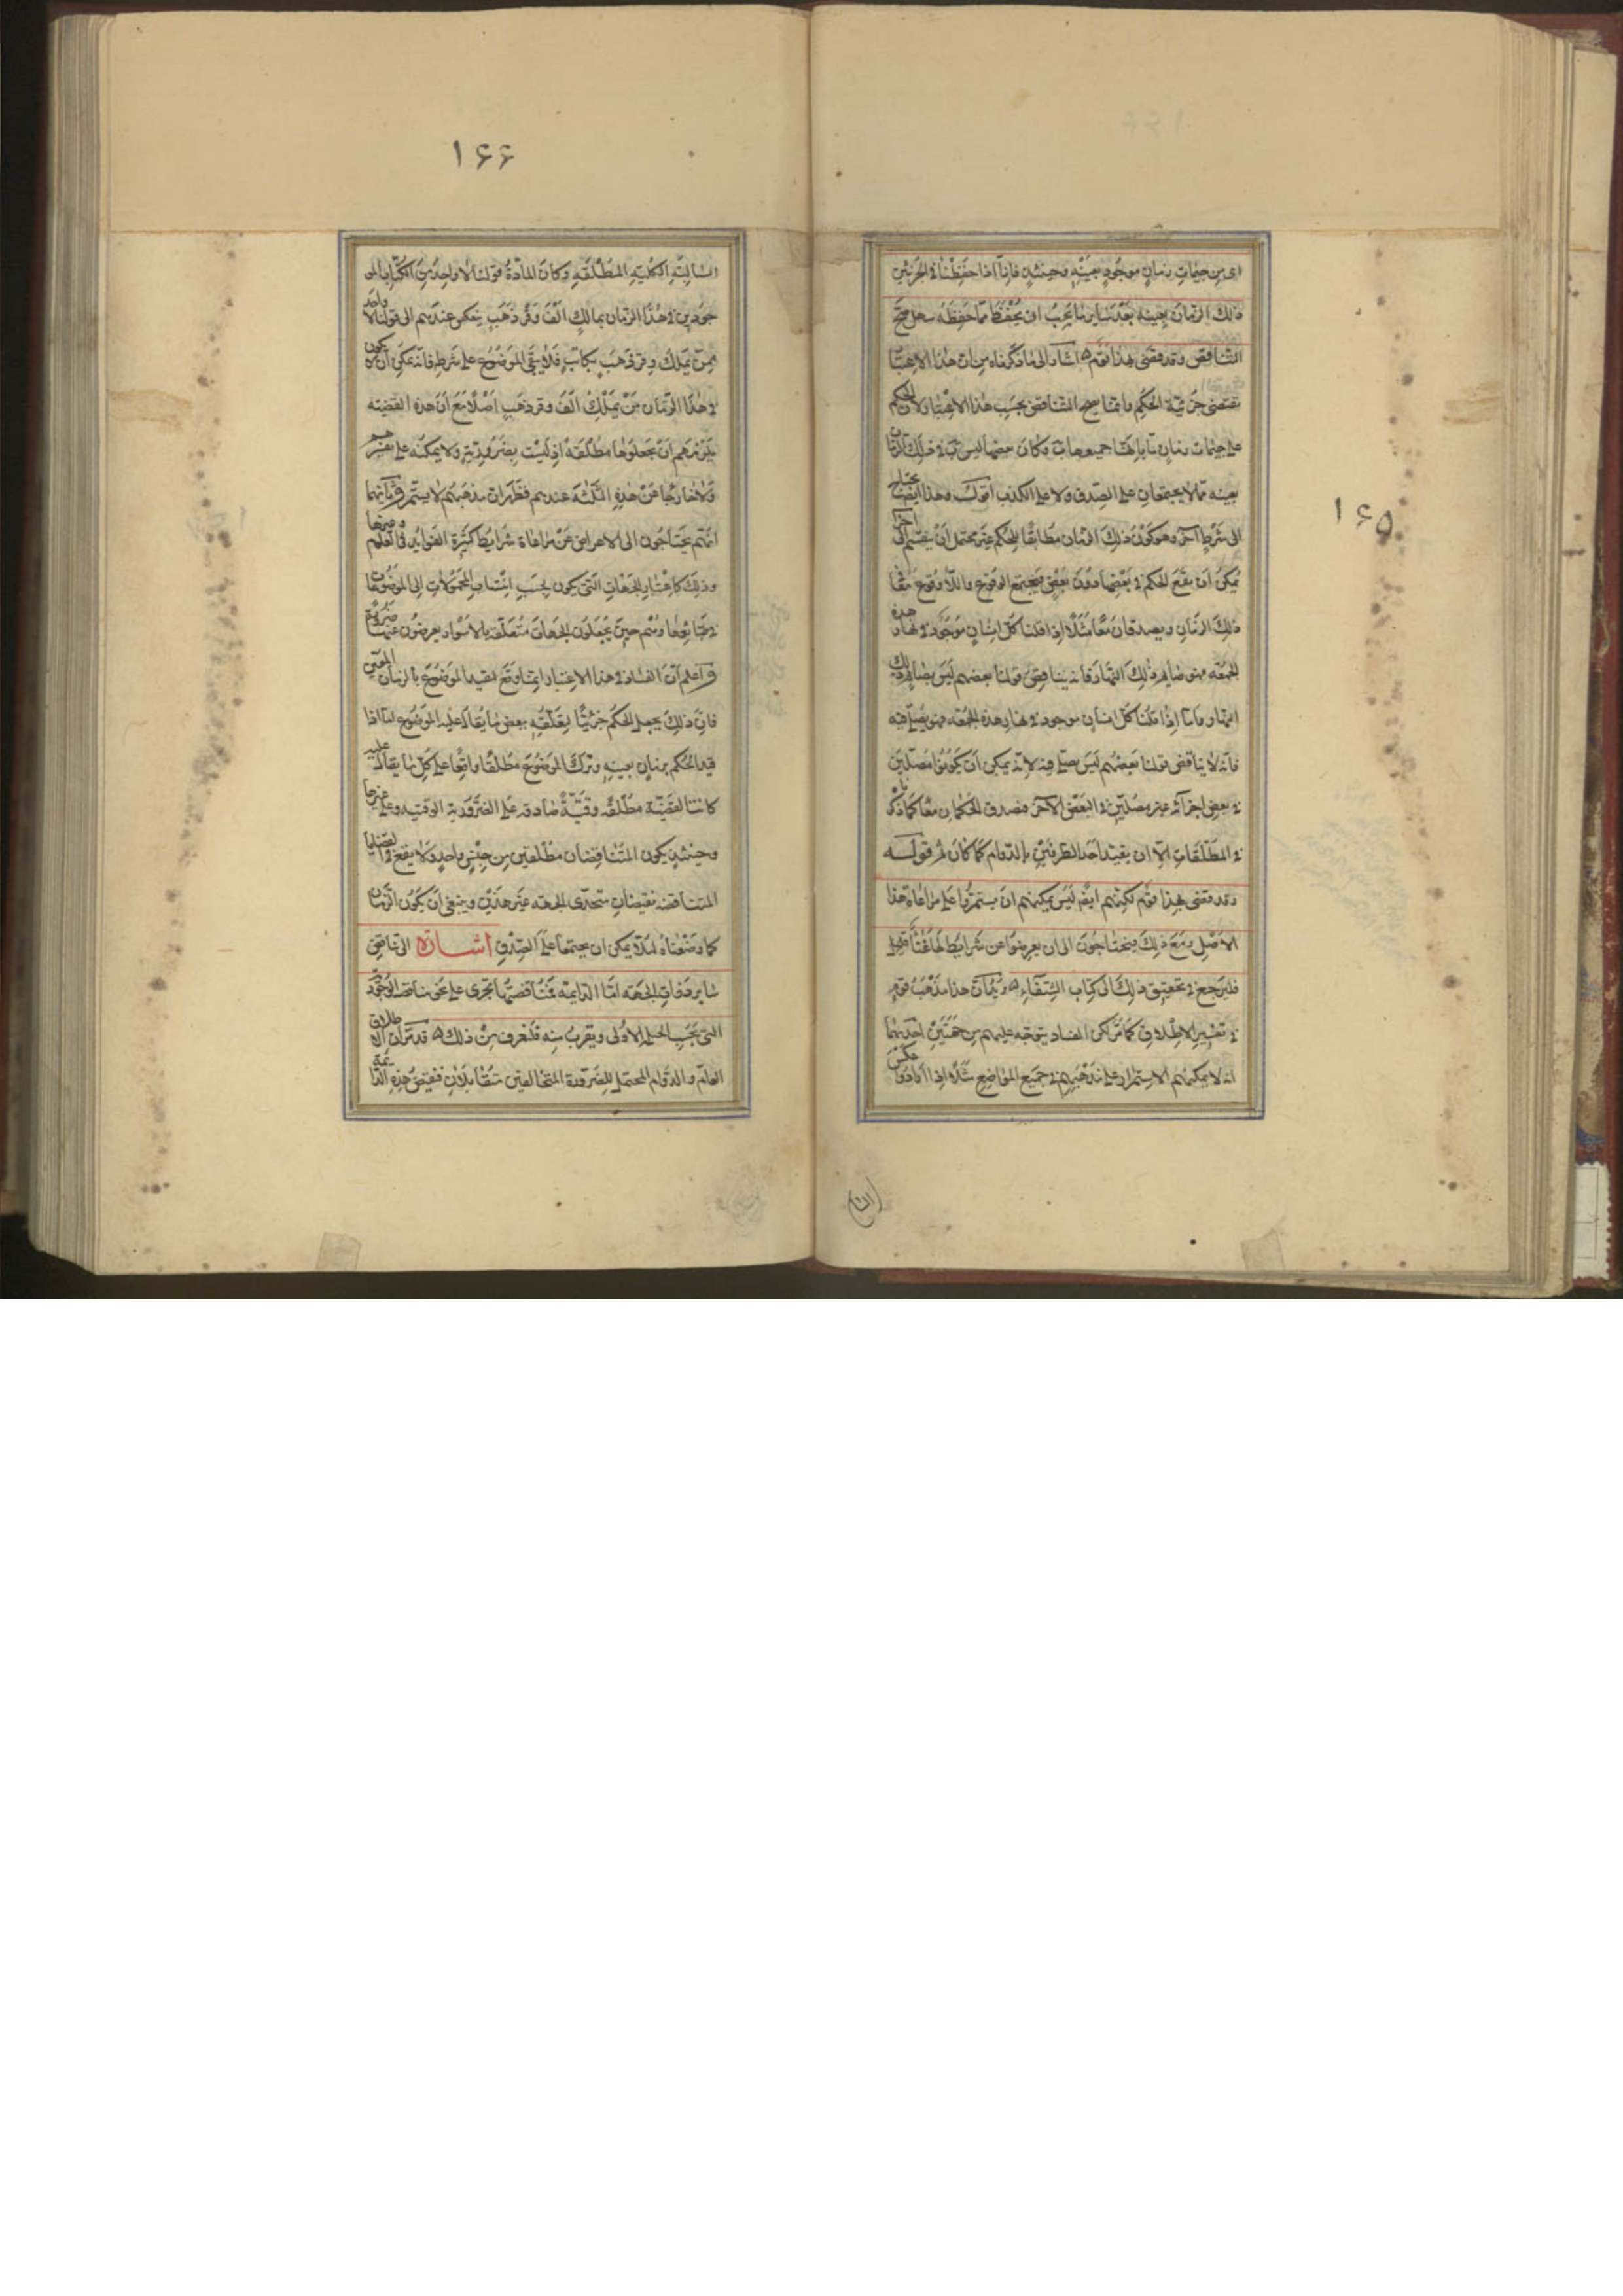 ١۶۵
اى من جزئيات زمان موجود بعينه وحينئذ فانا اذا حفظنا فى الجزئيتين
ذلك الزمان بعينه بعد ساير ما يجب ان يحفظ مما حفظه سهل صح
التناقض وقد قضى بهذا قوم اشار الى ما ذكرناه من ان هذا الاعتبار
تقتضى جزئية الحكم وانما صح التناقض بحسب هذا الاعتبار لان الحكم
على جزئيات زمان ما بانها جميعها ب وكان بعضها ليس ب فى ذلك الزمان
بعينه مما لا يجتمعان على الصدق ولا على الكذب اقول وهذا ايضا يحتاج
الى شرط آخر وهو كون ذلك الزمان مطابقا للحكم غير محتمل ان ينقسم الى اجزاء
يمكن ان يقع الحكم فى بعضها دون بعض فيجتمع الوقوع واللاوقوع معا فى
ذلك الزمان ويصدقان معا مثلا اذا قلنا كل انسان موجود فى نهار هذه
الجمعه فهو صايم ذلك النهار فانه يناقض قولنا بعضهم ليس بصايم ذلك
النهار واما اذا قلنا كل انسان موجود فى نهار هذه الجمعه فهو يصلى فيه
فانه لا يناقض قولنا بعضهم ليس يصلى فيه لانه يمكن ان يكونوا مصلين
فى بعض اجزائه غير مصلين فى البعض الآخر فصدق الحكمان معا كما ذكرنا
فى المطلقات الا ان يقيد احد الطرفين بالدوام كما كان ثم قوله
وقد قضى بهذا قوم لكنهم ايضا ليس يمكنهم ان يستمروا على مراعاة هذا
الاصل ومع ذلك فيحتاجون الى ان يعرضوا عن شرايط لها غناء
فليرجع فى تحقيق ذلك الى كتاب الشفاء هذا مذهب قوم
فى تفسير الاطلاق كما مر لكن الفساد يتوجه عليهم من جهتين احديهما
انه لا يمكنهم الاستمرار على مذهبهم فى جميع المواضع مثلا اذا ارادوا عكس
١۶۶
السالبة الكلية المطلقة وكان المادة قولنا لا واحد من الكتاب المو
جودين فى هذا الزمان بمالك الف وقر ذهب ينعكس عندهم الى قولنا لا واحد
ممن يملك وقر ذهب بكاتب فلا يبقى الموضوع على شرط فانه يمكن ان لا يكون
فى هذا الزمان من يملك الف وقر ذهب اصلا مع ان هذه القضية
يلزمهم ان يجعلوها مطلقة اذ ليست بضرورية ولا يمكنه على تفسيرهم
ولا خارجا عن هذه الثلثة عندهم فظهر ان مذهبهم لا يستمر وثانيهما
انهم يحتاجون الى الاعراض عن مراعاة شرايط كثيرة الفوايد فى العلوم وغيرها
وذلك كاعتبار الجهات التى يكون بحسب انتساب المحمولات الى الموضوعات
فى طبايعها وهم حين يجعلون الجهات متعلقة بالاسوار يعرضون عنها ضرورة
واعلم ان الفساد فى هذا الاعتبار انما وقع لتقييد الموضوع بالزمان المعين
فان ذلك يجعل الحكم جزئيا لتعلقه ببعض ما يقال عليه الموضوع اما اذا
قيد الحكم بزمان بعينه وترك الموضوع مطلقا واقعا على كل ما يقال عليه
كانت القضية مطلقة وقتية صادقة على الضرورية الوقتية وعلى غيرها
وحينئذ يكون المتناقضان مطلقين من جنس واحد ولا يقع فى القضايا
المتناقضة نقيضان متحدى الجهة غير هذين وينبغى ان يكون الزمان
كما وضعناه لئلا يمكن ان يجتمعا على الصدق اشارة الى تناقض
ساير ذوات الجهه اما الدايمة فمناقضتها تجرى على نحو مناقضة الوجودية
التى بحسب الحيلة الاولى ويقرب منه فلتعرف من ذلك قد مر ان الاطلاق
العام والدوام المحتمل للضرورة المتخالفين متقابلان فنقيض هذه الدائمة